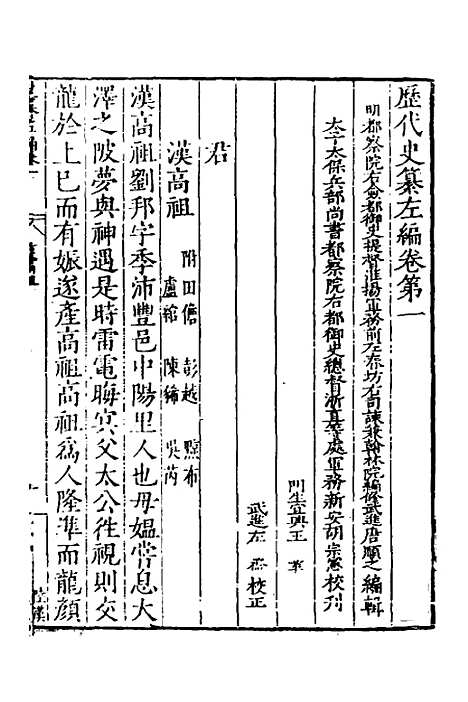 歷代史纂左編卷第一
明都察院右僉都御史提督淮揚軍務前左春坊右司諫兼翰林院編修武進唐順之編輯
太子太保兵部尚書都察院右都御史總督浙直等處軍務新安胡宗憲校刊
門生宜興王革
武進左烝校正
君
漢高祖
附田儋 彭越 黥布
盧綰 陳豨 吳芮
漢高祖劉邦字季沛豐邑中陽里人也母媼嘗息大
澤之陂夢與神遇是時雷電晦冥父太公往視則交
龍於上已而有娠遂產高祖高祖為人隆準而龍顏